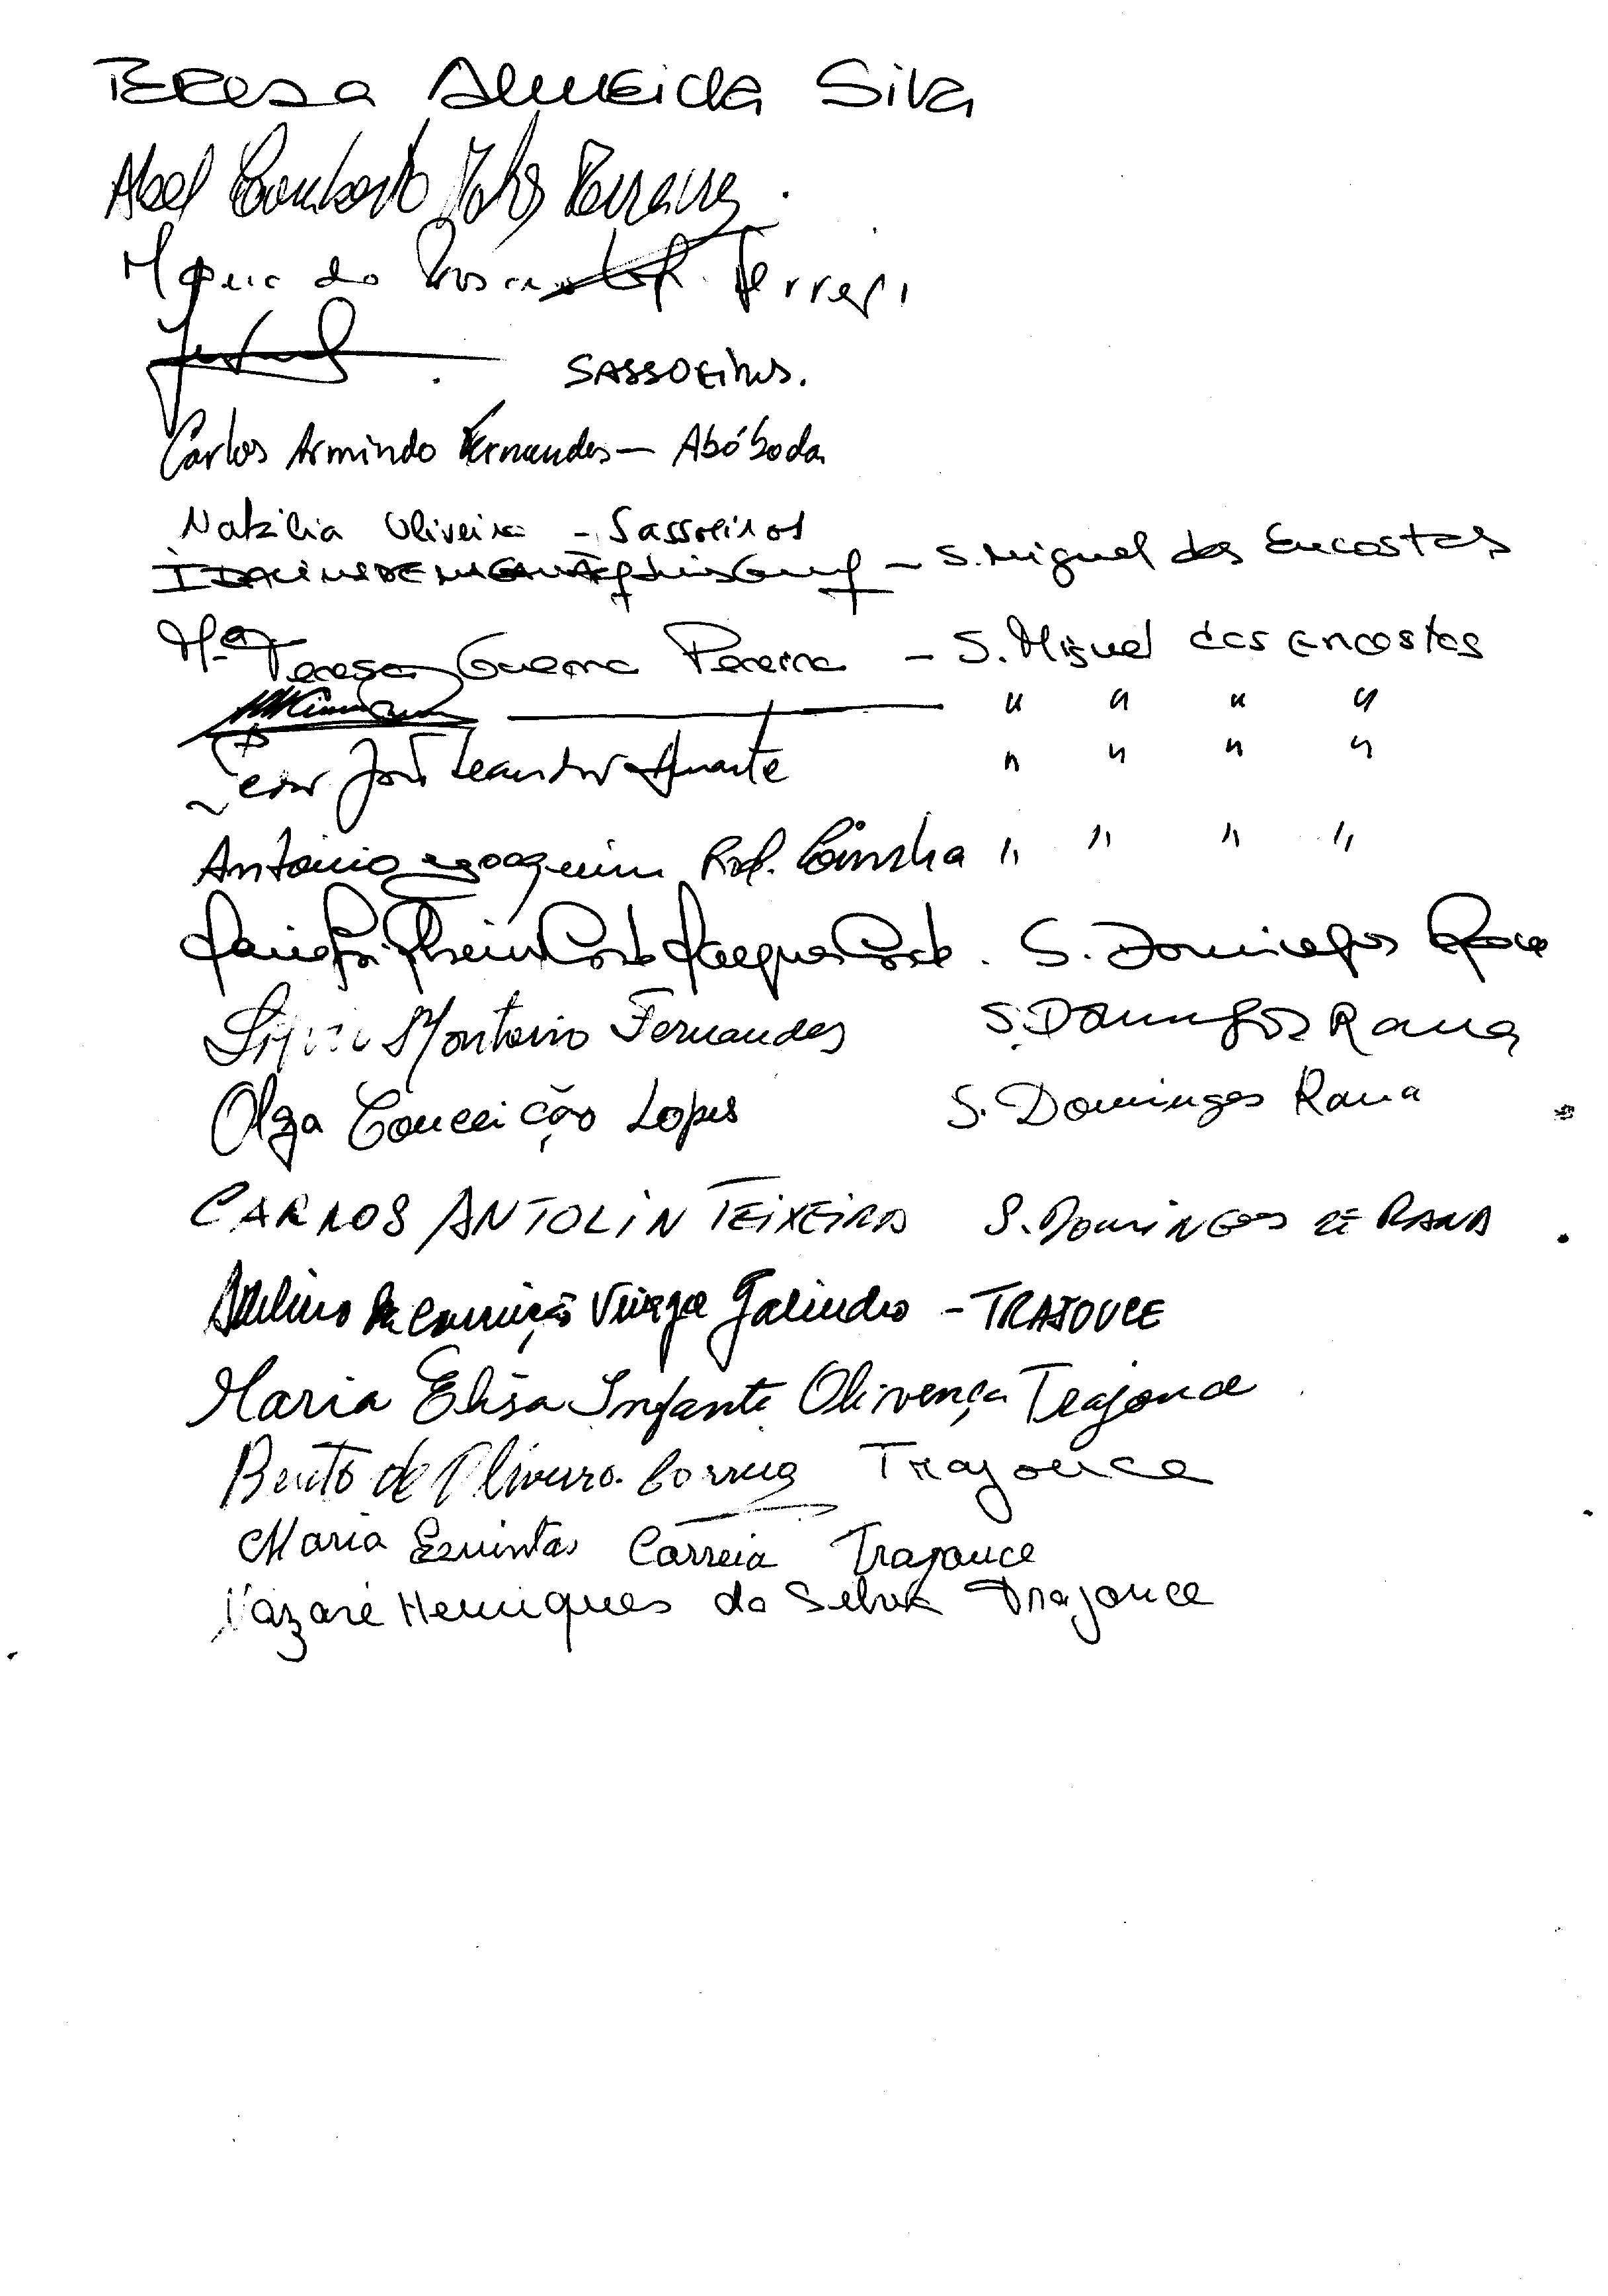 Teresa Almeida Silva
Abel
Maria do Ferrei
SASSOEIROS.
Carlos Armindo Fernandes — Abóboda
Natália Oliveira - Sassoeiros
- S. Miguel das Encostas
M.ª Teresa Guerra Pereira - S. Miguel das Encostas
" " " "
José Leandro Duarte " " " "
António Joaquim Rod. Cainha " " " "
Costa. S. Domingos Rana
Monteiro Fernandes S. Domingos Rana
Olga Conceição Lopes S. Domingos Rana
CARLOS ANTOLIN TEIXEIRA S. DOMINGOS DE RANA
da Conceição Galindro - TRAJOUCE
Maria Elisa Infante Olivença Trajouce
Bento de Oliveira Correia Trajouce
Maria Quintas Correia Trajouce
Nazaré Henriques da Silva Trajouce